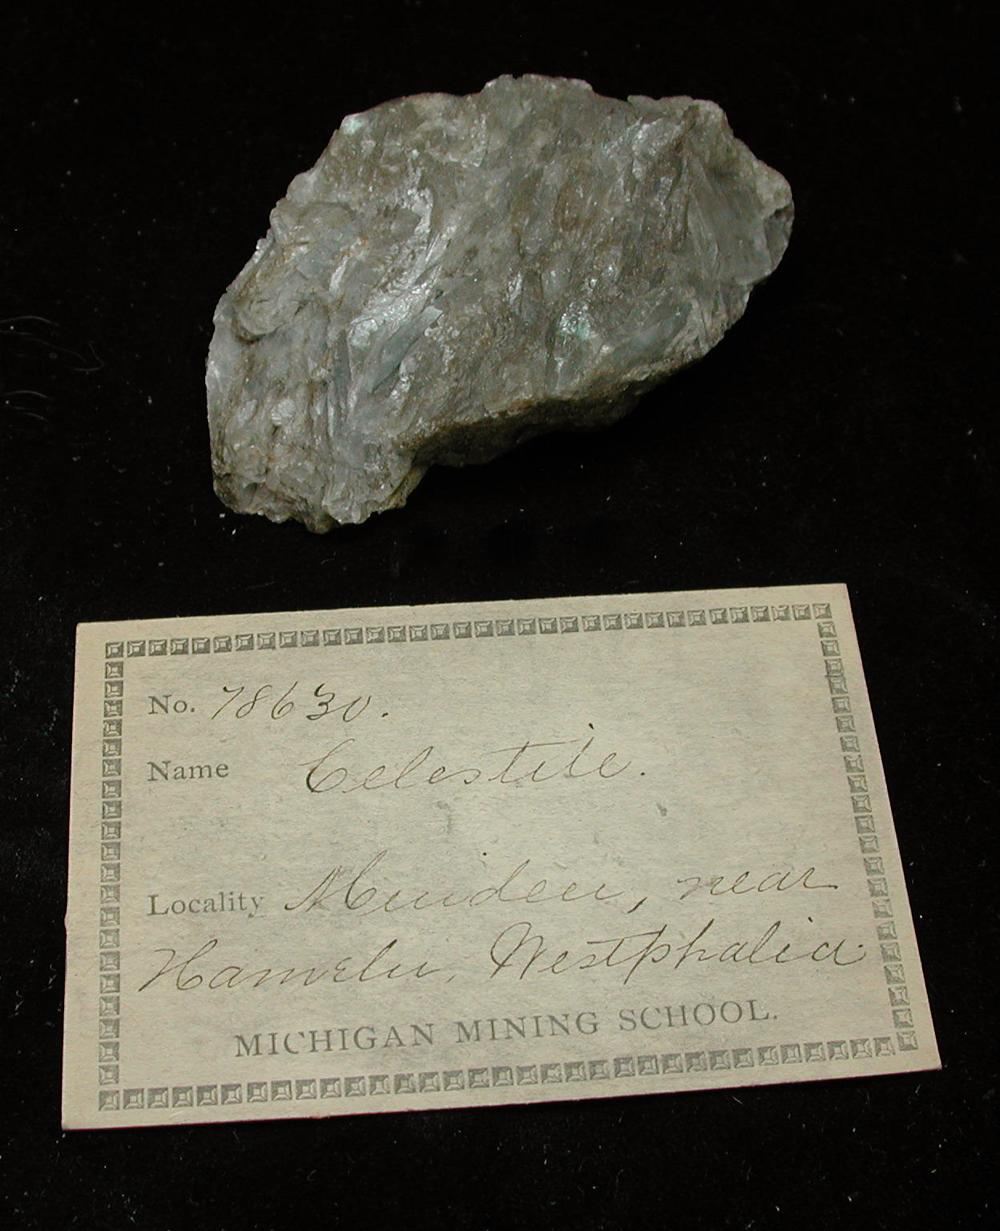 No. 78630.
Name Celestite.
Locality Minden, near
Hameln, Westphalia
MICHIGAN MINING SCHOOL.